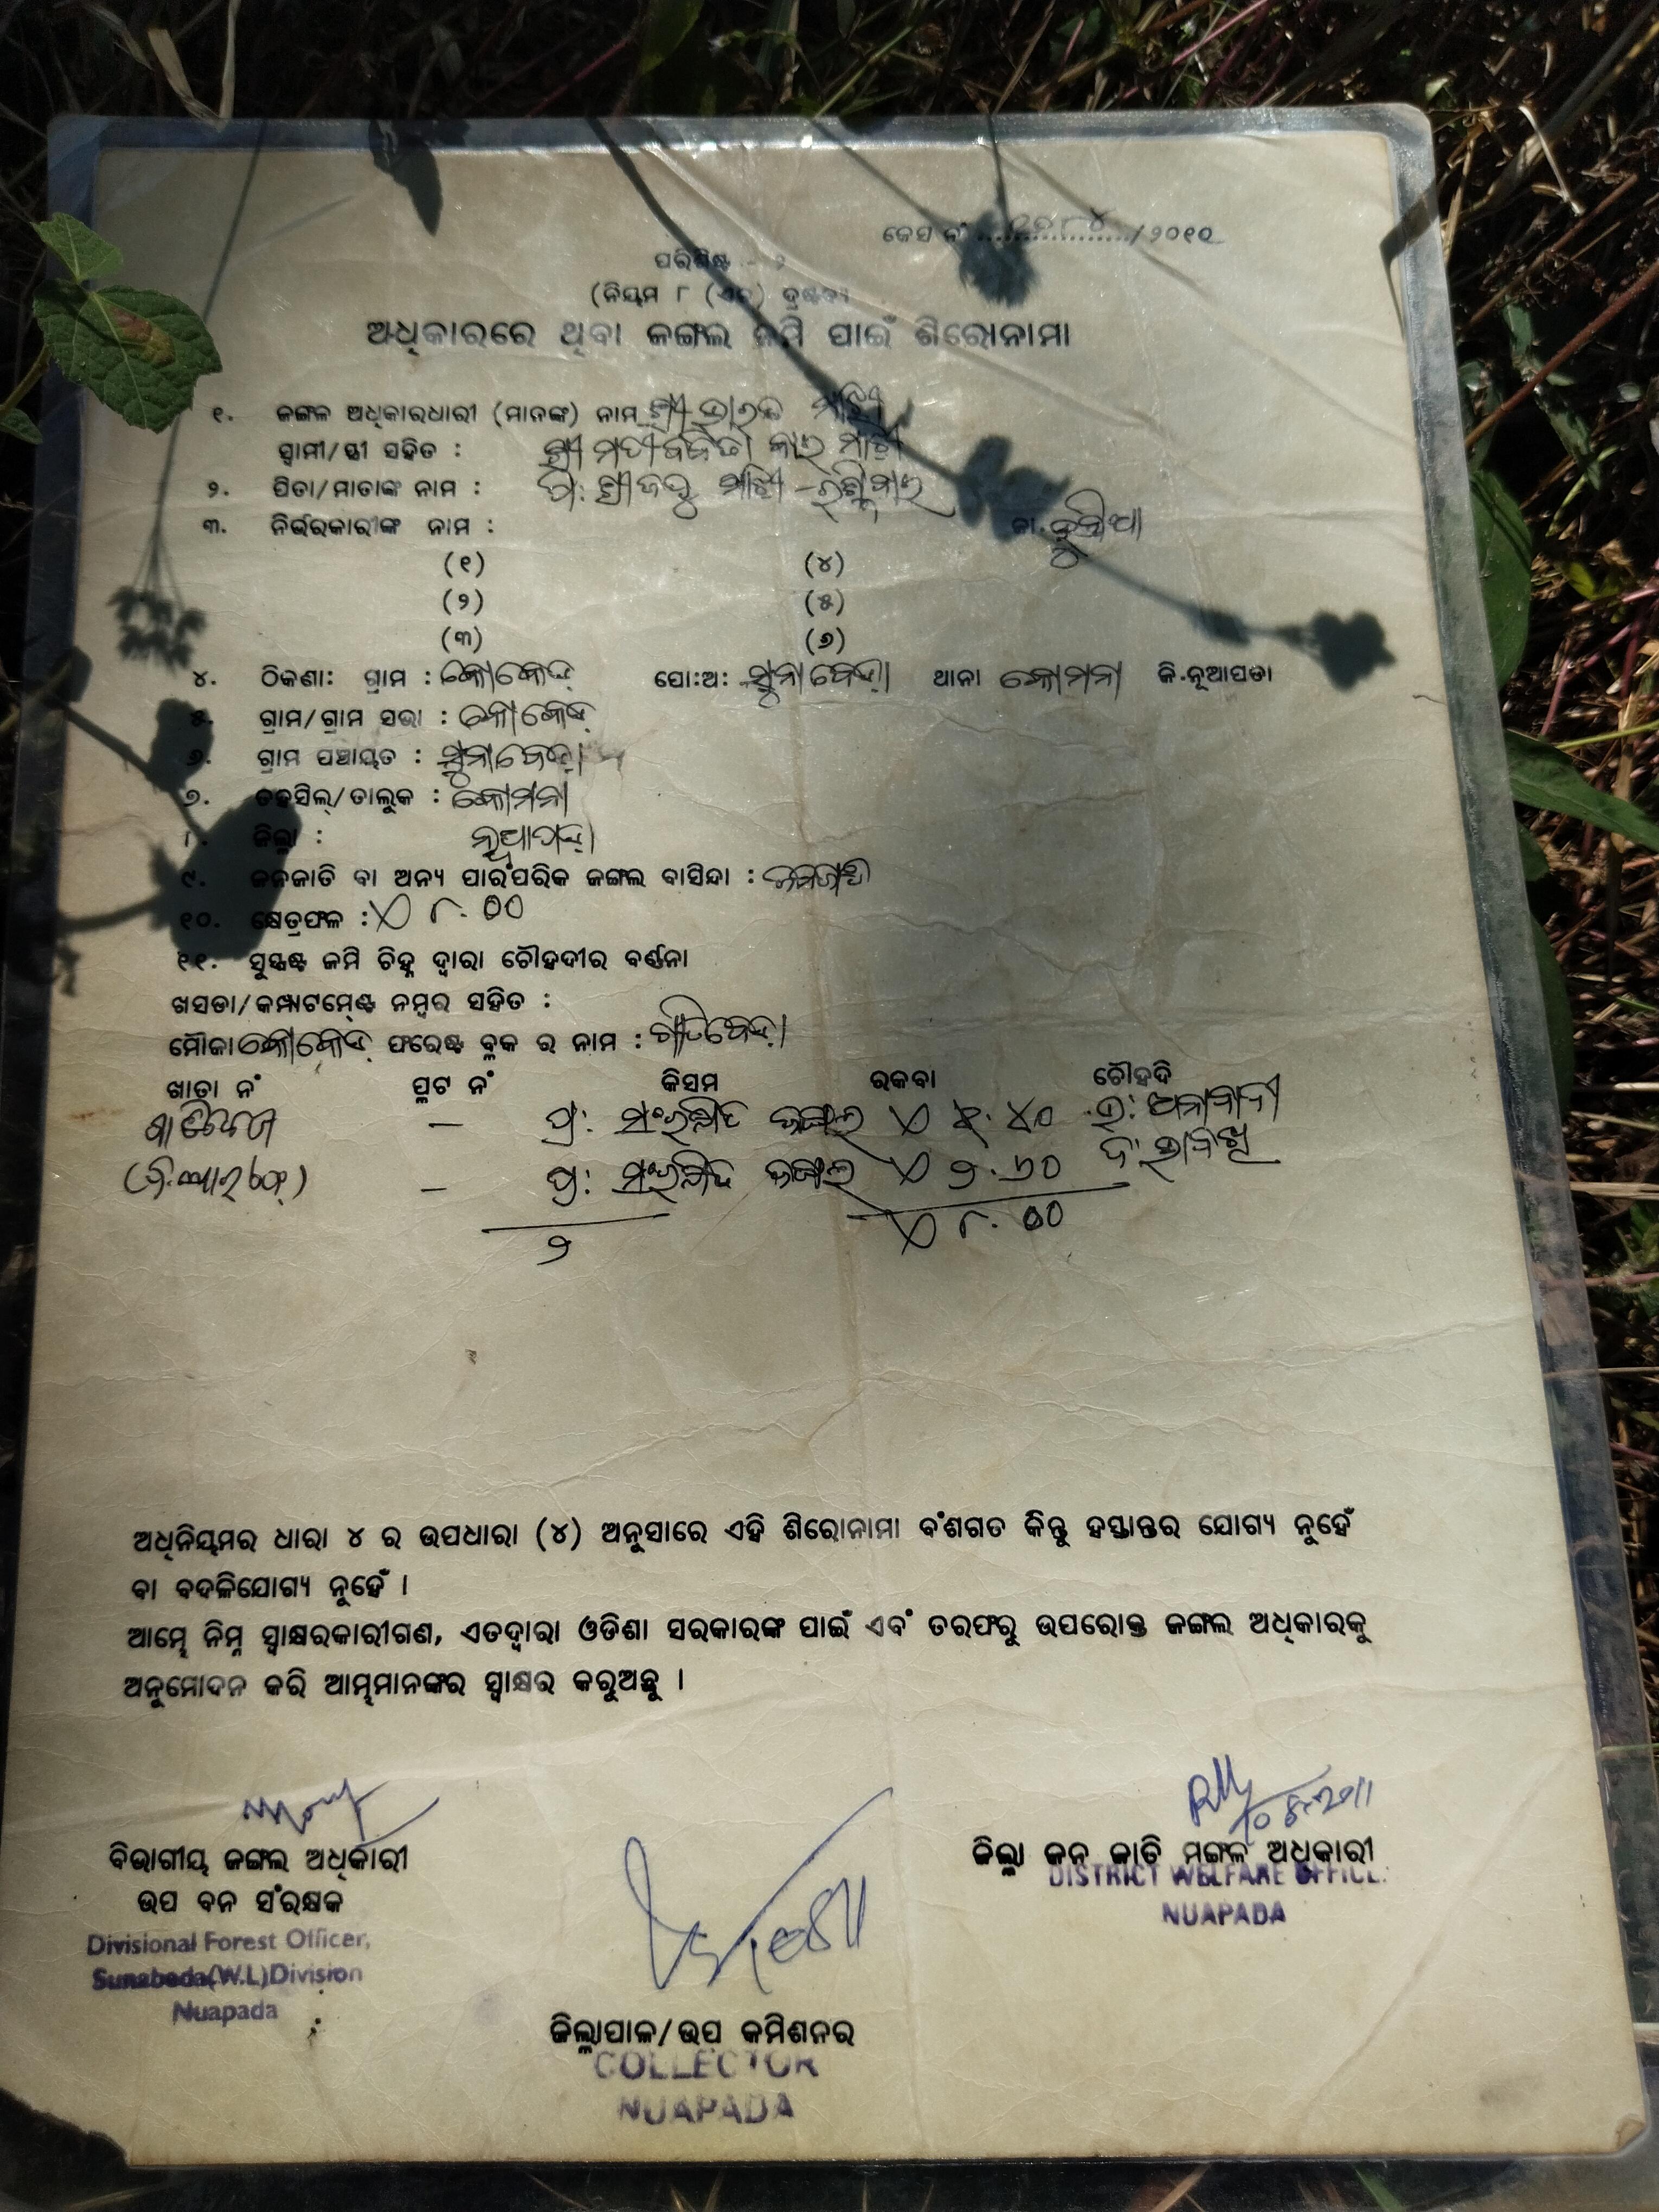 କେସ ନଂ ..................../୨୦୧୦
ପରିଶିଷ୍ଟ - ୨
(ନିୟମ ୮ (ଏଚ) ଦ୍ରଷ୍ଟବ୍ୟ
ଅଧିକାରରେ ଥିବା ଜଙ୍ଗଲ ଜମି ପାଇଁ ଶିରୋନାମା
୧. ଜଙ୍ଗଳ ଅଧିକାରଧାରୀ (ମାନଙ୍କ) ନାମ ଶ୍ରୀ ମାଝି
ସ୍ୱାମୀ/ସ୍ତ୍ରୀ ସହିତ : ମାଝି
୨. ପିତା/ମାତାଙ୍କ ନାମ : ପି: ମାଝି
୩. ନିର୍ଭରକାରୀଙ୍କ ନାମ :
(୧) (୪)
(୨) (୫)
(୩) (୬)
୪. ଠିକଣା: ଗ୍ରାମ : ପୋ:ଅ: ସୁନାବେଡ଼ା ଥାନା କୋମନା ଜି.ନୂଆପଡା
୫. ଗ୍ରାମ/ଗ୍ରାମ ସଭା :
୬. ଗ୍ରାମ ପଞ୍ଚାୟତ : ସୁନାବେଡ଼ା
୭. ତହସିଲ୍/ତାଲୁକ : କୋମନା
୮. ଜିଲ୍ଲା : ନୂଆପଡ଼ା
୯. ଜନଜାତି ବା ଅନ୍ୟ ପାରଂପରିକ ଜଙ୍ଗଲ ବାସିନ୍ଦା : ଜନଜାତି
୧୦. କ୍ଷେତ୍ରଫଳ : ୮.୦୦
୧୧. ସୁସ୍ପଷ୍ଟ ଜମି ଚିହ୍ନ ଦ୍ୱାରା ଚୌହଦୀର ବର୍ଣ୍ଣନା
ଖସଡା/କମ୍ପାଟମେଣ୍ଟ ନମ୍ବର ସହିତ :
ମୌଜା ଫରେଷ୍ଟ ବ୍ଳକ ର ନାମ :
ଖାତା ନଂ ପ୍ଳଟ ନଂ କିସମ ରକବା ଚୌହଦି
— ପ୍ର: ସଂରକ୍ଷିତ ଜଙ୍ଗଲ ୫.୪୦ ଉ: ଅନାବାଦୀ
— ପ୍ର: ସଂରକ୍ଷିତ ଜଙ୍ଗଲ ୨.୬୦ ଦ:
୨ ୮.୦୦
ଅଧିନିୟମର ଧାରା ୪ ର ଉପଧାରା (୪) ଅନୁସାରେ ଏହି ଶିରୋନାମା ବଂଶଗତ କିନ୍ତୁ ହସ୍ତାନ୍ତର ଯୋଗ୍ୟ ନୁହେଁ
ବା ବଦଳିଯୋଗ୍ୟ ନୁହେଁ ।
ଆମ୍ଭେ ନିମ୍ନ ସ୍ୱାକ୍ଷରକାରୀଗଣ, ଏତଦ୍ୱାରା ଓଡିଶା ସରକାରଙ୍କ ପାଇଁ ଏବଂ ତରଫରୁ ଉପରୋକ୍ତ ଜଙ୍ଗଲ ଅଧିକାରକୁ
ଅନୁମୋଦନ କରି ଆମ୍ଭମାନଙ୍କର ସ୍ୱାକ୍ଷର କରୁଅଛୁ ।
ବିଭାଗୀୟ ଜଙ୍ଗଲ ଅଧିକାରୀ
ଉପ ବନ ସଂରକ୍ଷକ
Divisional Forest Officer,
Sunabeda(W.L)Division
Nuapada
ଜିଲ୍ଲା ଜନ ଜାତି ମଙ୍ଗଳ ଅଧିକାରୀ
DISTRICT WELFARE OFFICE
NUAPADA
ଜିଲ୍ଲାପାଳ/ଉପ କମିଶନର
COLLECTOR
NUAPADA